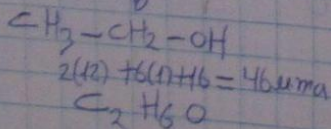 CH₃-CH₂-OH
2(12)+6(1)+16=46uma
C₂H₆O